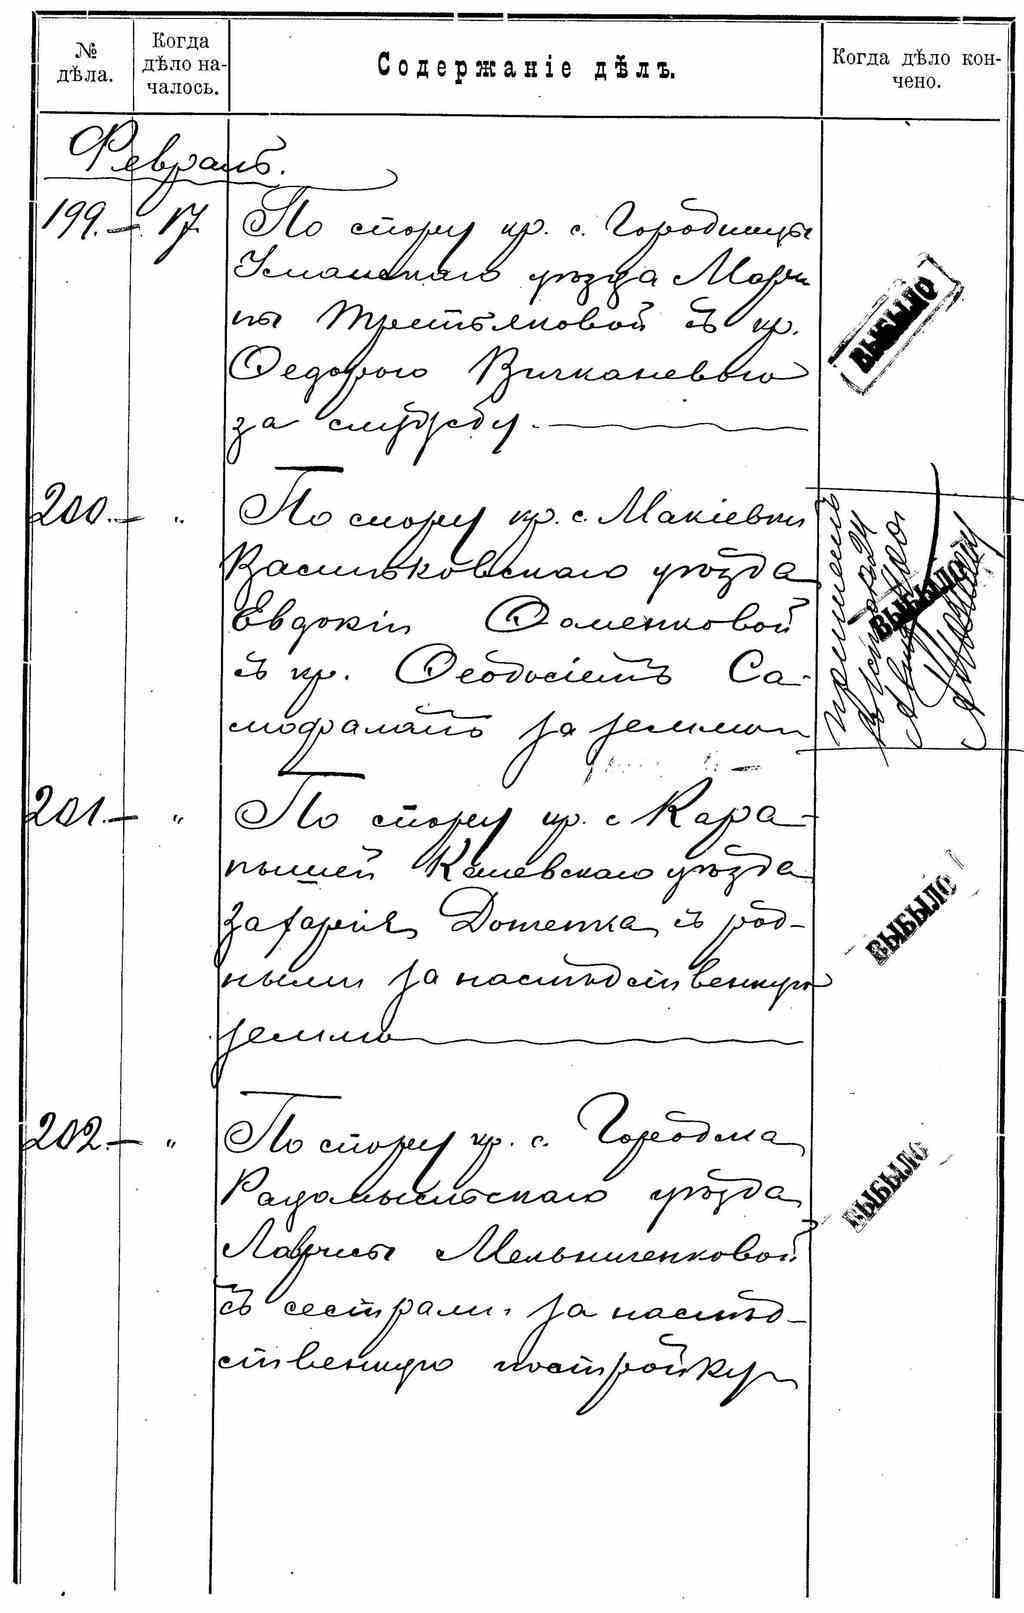 № дѣла.
Когда дѣло на-
чалось.
Содержаніе дѣлъ.
Когда дѣло кон-
чено.
Февраль.
199.— 17. По спору кр. с. Городницы
Уманскаго уѣзда Мари
ны Третьяковой съ кр.
Ѳедоромъ
за службу.
ВЫБЫЛО
200.— " По спору кр. с. Макіевки
Васильковскаго уѣзда
Евдокіи Фоменковой
съ кр. Ѳеодосіемъ Са-
мофаломъ за землю
ВЫБЫЛО
201.— " По спору кр. с Кара-
пышей Каневскаго уѣзда
Захарія Доценка съ род-
ными за наслѣдственную
землю
ВЫБЫЛО
202.— " По спору кр. с. Городска
Радомысльскаго уѣзда
Мельниченковой
съ сестрами за наслѣд-
ственную постройку
ВЫБЫЛО